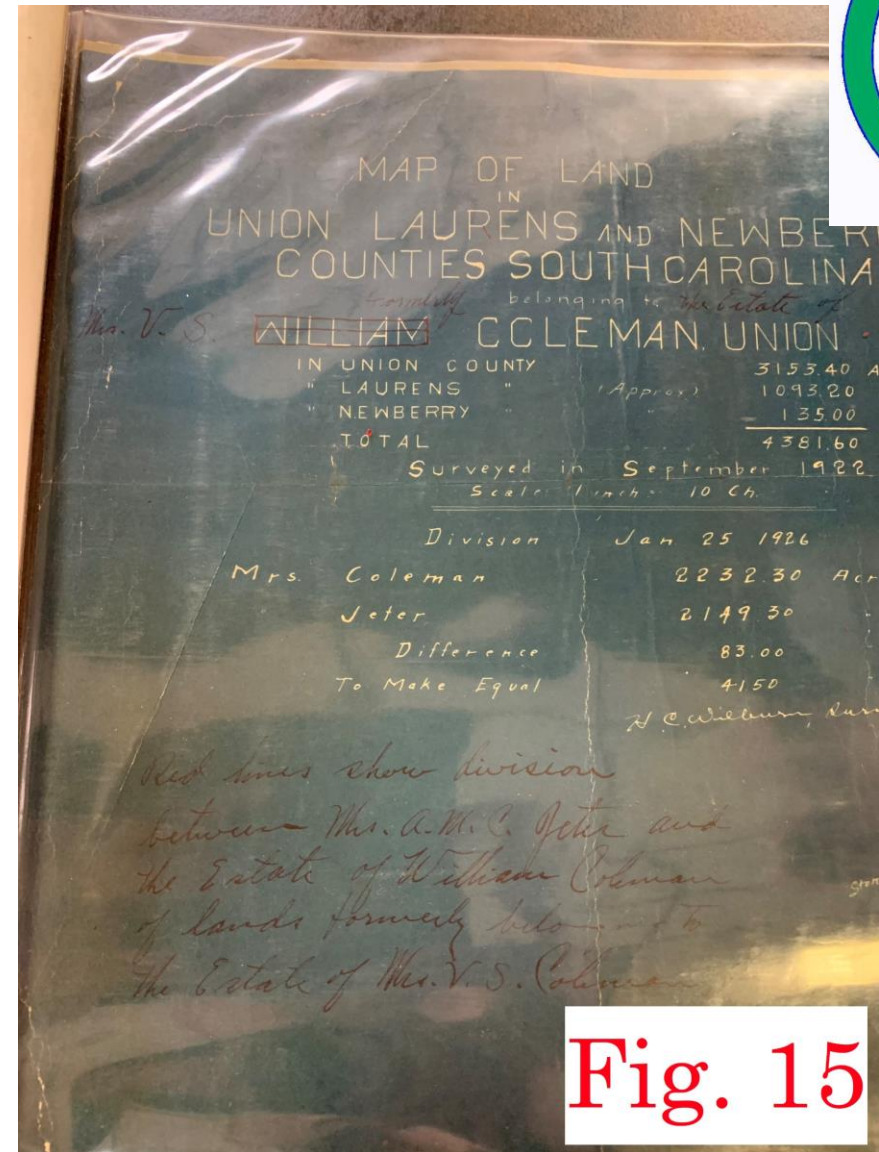 MAP OF LAND
IN
UNION LAURENS AND NEWBER
COUNTIES SOUTH CAROLINA
formerly belonging to the Estate of
Mrs. V. S. WILLIAM CCLEMAN. UNION
IN UNION COUNTY 3153.40 A
" LAURENS " (Approx) 1093.20
" NEWBERRY " " 135.00
TOTAL 4381.60
Surveyed in September 1922
Scale 1 inch = 10 Ch.
Division Jan 25 1926
Mrs. Coleman 2232.30 Acr
Jeter 2149.30
Difference 83.00
To Make Equal 4150
H. C. Wilburn, Sur
Red lines show division
between Mrs. A. M. C. Jeter and
the Estate of William Coleman
of lands formerly belonging to
the Estate of Mrs. V. S. Coleman
Fig. 15